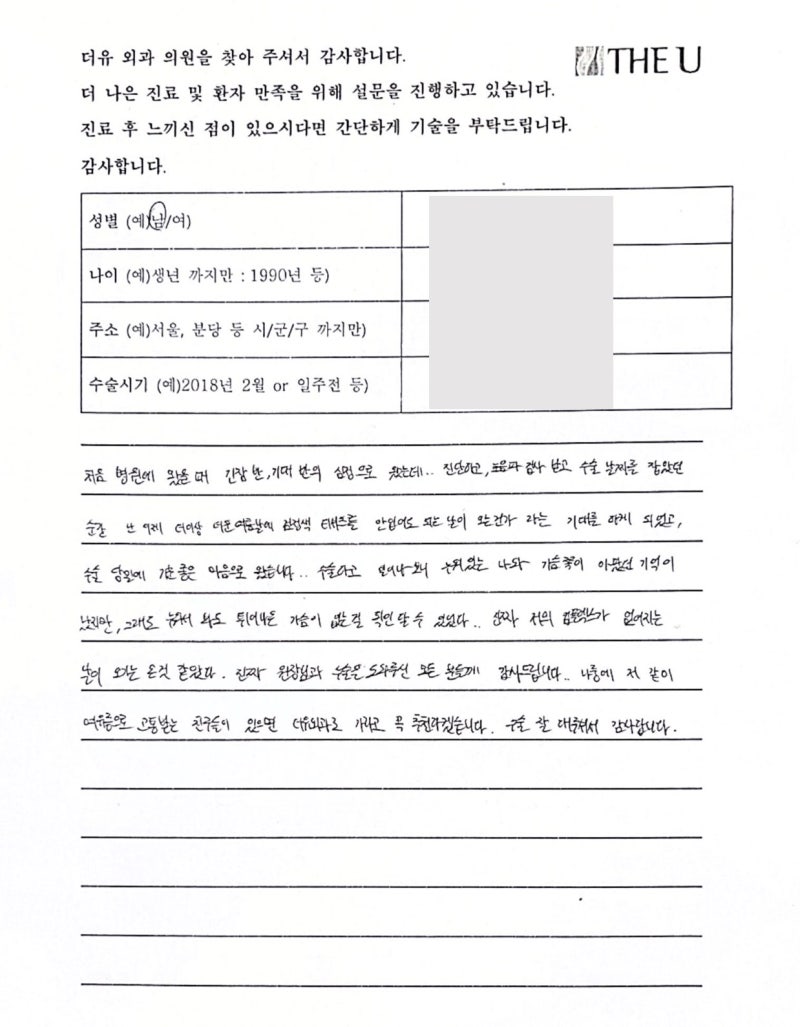 더유 외과 의원을 찾아 주셔서 감사합니다.
THE U
더 나은 진료 및 환자 만족을 위해 설문을 진행하고 있습니다.
진료 후 느끼신 점이 있으시다면 간단하게 기술을 부탁드립니다.
감사합니다.
성별 (예)남/여)
나이 (예)생년 까지만 : 1990년 등)
주소 (예)서울, 분당 등 시/군/구 까지만)
수술시기 (예)2018년 2월 or 일주전 등)
처음 병원에 왔을 때 긴장 반, 기대 반의 심정으로 왔는데.. 진단하고, 초음파 검사 받고 수술 날짜를 잡았던
순간 난 이제 더이상 더운 여름날에 검정색 티셔츠를 안입어도 되는 날이 오는건가 라는 기대를 하게 되었고,
수술 당일에 기분 좋은 마음으로 왔습니다.. 수술하고 일어나보니 누워있는 나와 가슴쪽이 아팠던 기억이
났지만, 그래도 눈에서 봐도 튀어나온 가슴이 없는걸 확인 할 수 있었다.. 진짜 저의 콤플렉스가 없어지는
날이 오기는 온것 같았다. 진짜 원장님과 수술을 도와주신 모든 분들께 감사드립니다.. 나중에 저 같이
여유증으로 고통받는 친구들이 있으면 더유외과로 가라고 꼭 추천하겠습니다. 수술 잘 해주셔서 감사합니다.